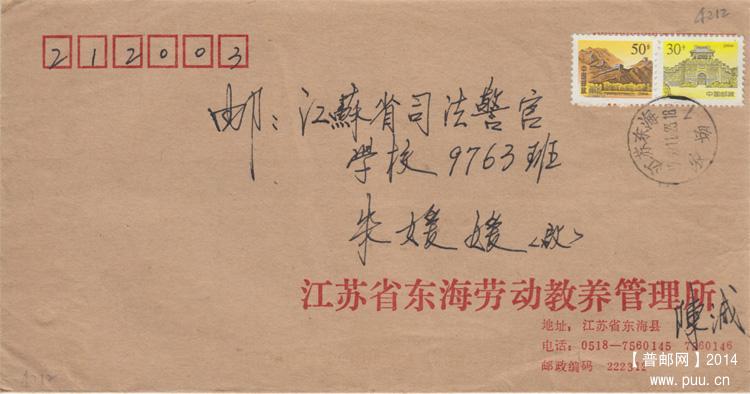 4212
212003
50分
中国邮政
30分
中国邮政
江苏东海
邮：江蘇省司法警官
学校9763班
朱媛媛〈啟〉
江苏省东海劳动教养管理所
陳诚
地址：江苏省东海县
电话：0518—7560145 7560146
邮政编码 222342
4212
【普邮网】2014
www.puu.cn